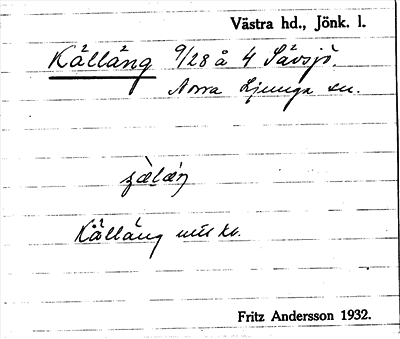 Västra hd., Jönk. l.
Kållång 9/28 å 4 Sävsjö.
Norra Ljunga sn.
Kållång
Fritz Andersson 1932.